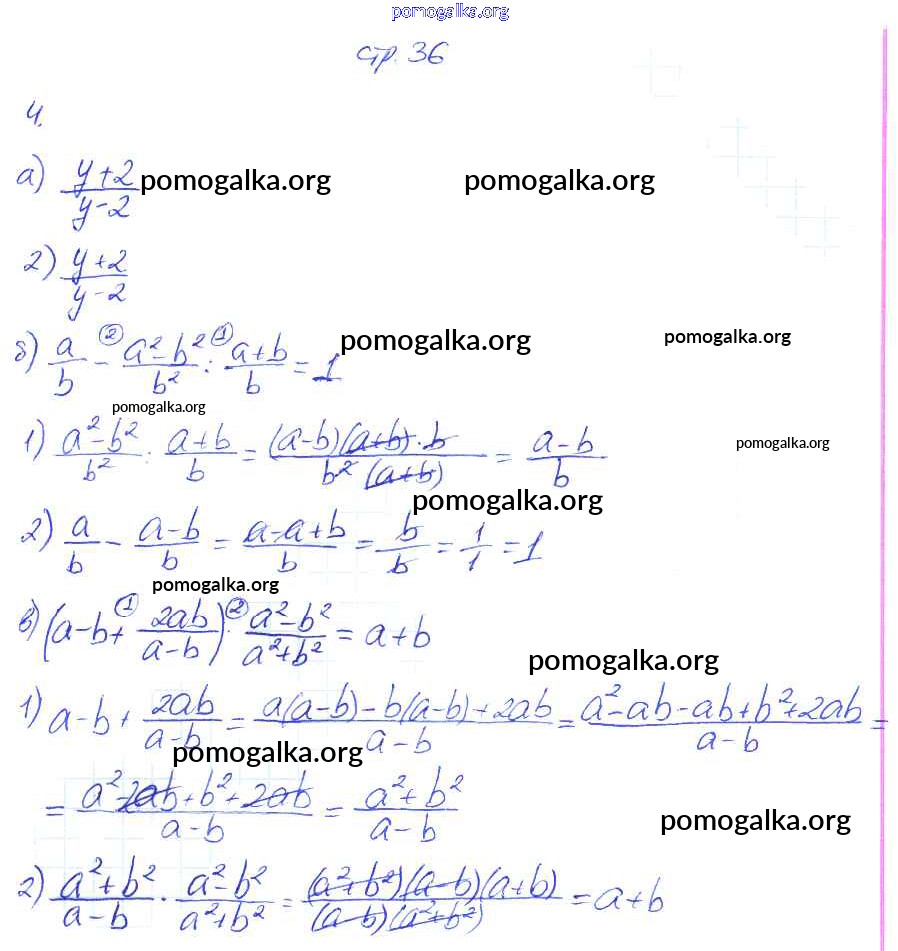 pomogalka.org
стр. 36
4.
а) (y+2)/(y-2) pomogalka.org pomogalka.org
2) (y+2)/(y-2)
б) a/b -② (a²-b²)/b² :① (a+b)/b = 1 pomogalka.org pomogalka.org
pomogalka.org
1) (a²-b²)/b² : (a+b)/b = ((a-b)(a+b)·b)/(b²(a+b)) = (a-b)/b pomogalka.org
pomogalka.org
2) a/b - (a-b)/b = (a-a+b)/b = b/b = 1/1 = 1
pomogalka.org
в) (a-b+① 2ab/(a-b)) ·② (a²-b²)/(a²+b²) = a+b
pomogalka.org
1) a-b + 2ab/(a-b) = (a(a-b)-b(a-b)+2ab)/(a-b) = (a²-ab-ab+b²+2ab)/(a-b) =
pomogalka.org
= (a²-2ab+b²+2ab)/(a-b) = (a²+b²)/(a-b)
pomogalka.org
2) (a²+b²)/(a-b) · (a²-b²)/(a²+b²) = ((a²+b²)(a-b)(a+b))/((a-b)(a²+b²)) = a+b